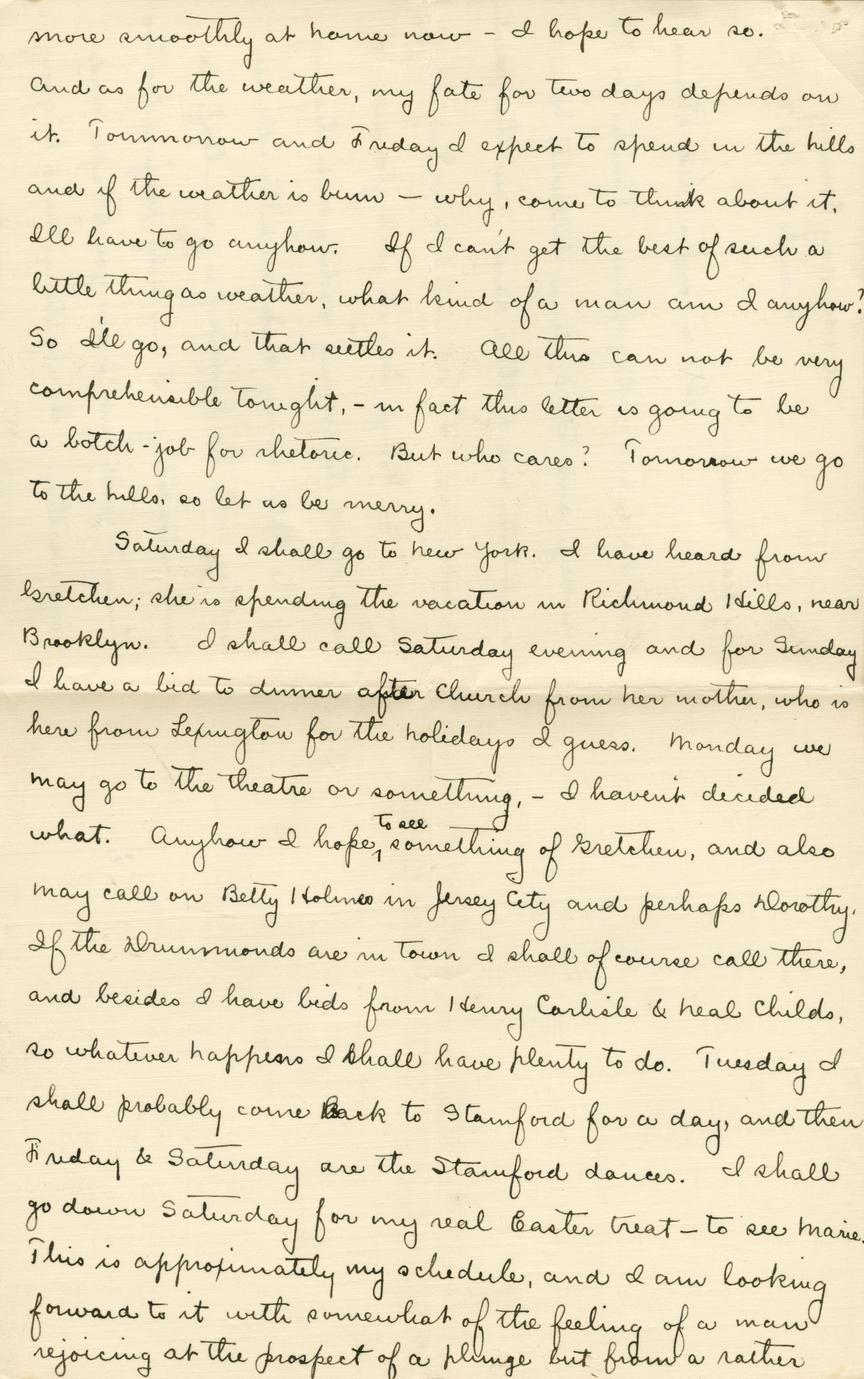 more smoothly at home now - I hope to hear so.
And as for the weather, my fate for two days depends on
it. Tommorrow and Friday I expect to spend in the hills
and if the weather is bum - why, come to think about it,
I'll have to go anyhow. If I can't get the best of such a
little thing as weather, what kind of a man am I anyhow?
So I'll go, and that settles it. All this can not be very
comprehensible tonight, - in fact this letter is going to be
a botch-job for rhetoric. But who cares? Tomorrow we go
to the hills, so let us be merry.
Saturday I shall go to New York. I have heard from
Gretchen; she is spending the vacation in Richmond Hills, near
Brooklyn. I shall call Saturday evening and for Sunday
I have a bid to dinner after church from her mother, who is
here from Lexington for the holidays I guess. Monday we
may go to the theatre or something, - I haven't decided
what. Anyhow I hope to see something of Gretchen, and also
may call on Betty Holmes in Jersey City and perhaps Dorothy.
If the Drummonds are in town I shall of course call there,
and besides I have bids from Henry Carlisle & Neal Childs,
so whatever happens I shall have plenty to do. Tuesday I
shall probably come back to Stamford for a day, and then
Friday & Saturday are the Stamford dances. I shall
go down Saturday for my real Easter treat - to see Marie.
This is approximately my schedule, and I am looking
forward to it with somewhat of the feeling of a man
rejoicing at the prospect of a plunge but from a rather